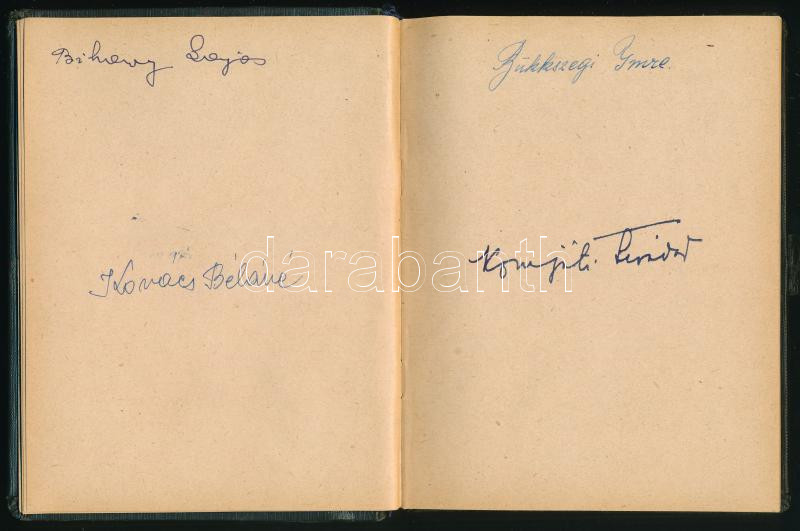 Bihary Lajos
Kovács Béláné
Bükkszegi Imre.
Komjáti Tivadar
darabanth.com